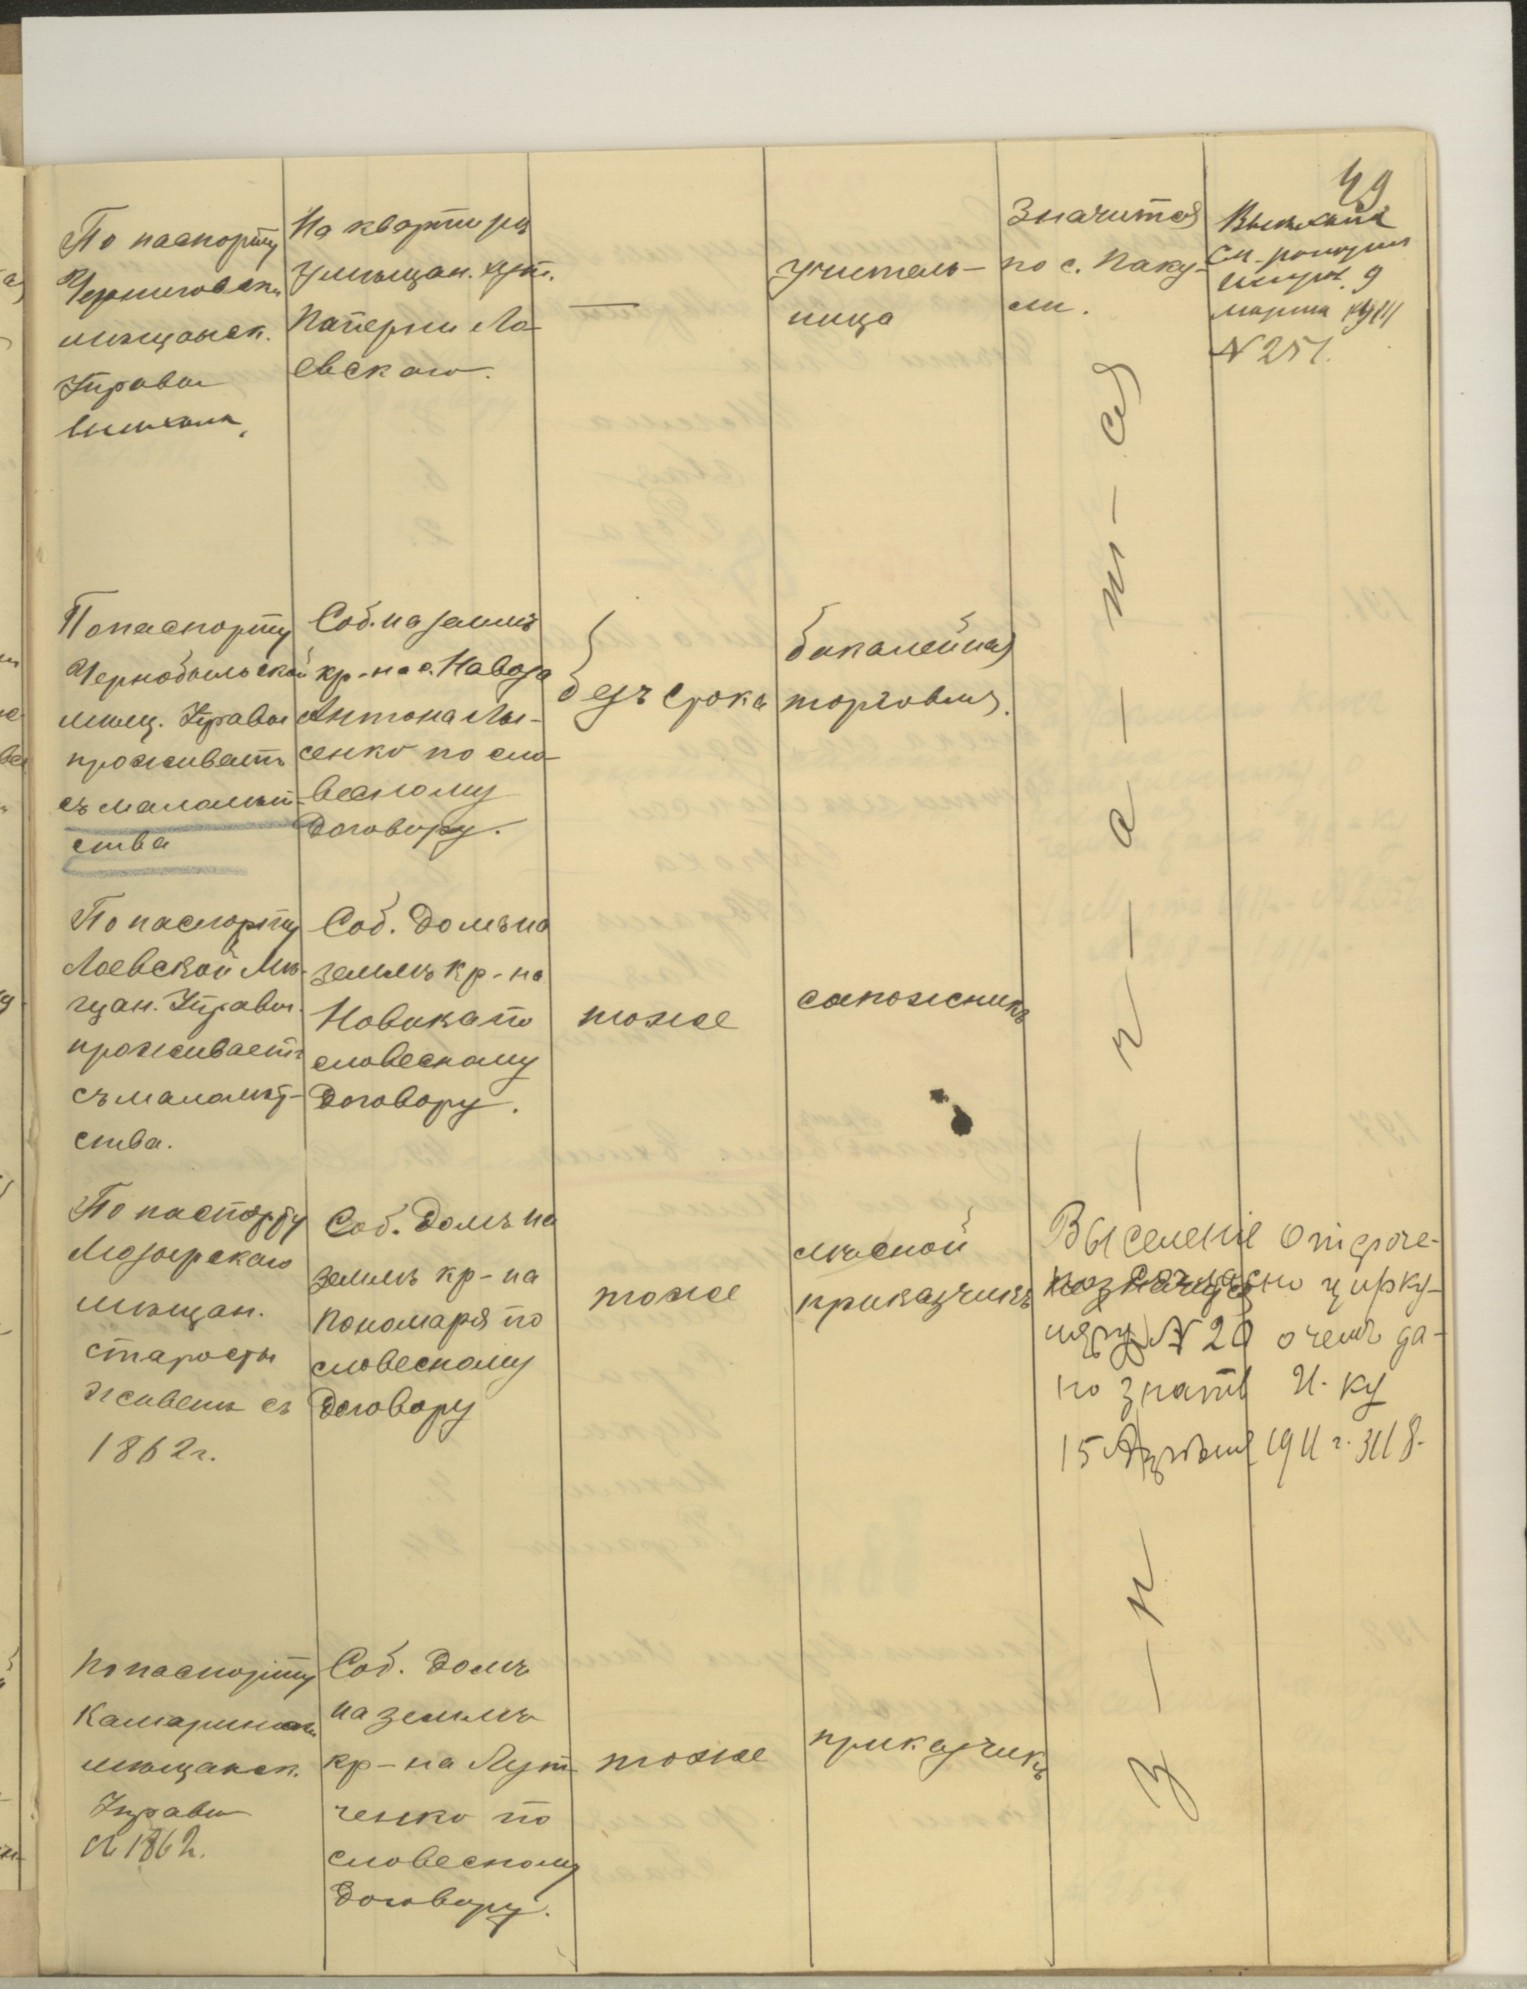 49
По паспорту
Черниговск.
мѣщанск.
Управы
выѣхала.
На квартирѣ
у мѣщан.
Паперни Ло-
евскаго.
—
учитель-
ница
Значится
по с. Паку-
ли.
Выѣхала
См. рапорт
9
марта 1911
№ 251.
По паспорту
Чернобыльской
мѣщ. Управы
проживаетъ
съ малолѣт-
ства
Соб. на землѣ
кр-на с. Навоза
Антона Лы-
сенко по сло-
весному
договору.
безъ срока
бакалейная
торговля.
По паспорту
Лоевской Мѣ-
щан. Управы.
проживаетъ
съ малолѣт-
ства.
Соб. домъ на
землѣ кр-на
Новика по
словесному
договору.
тоже
сапожникъ
По паспорту
Мозырскаго
мѣщан.
старосты
живетъ съ
1862 г.
Соб. домъ на
землѣ кр-на
Пономаря по
словесному
договору
тоже
мясной
приказчикъ
Выселеніе отсроче-
но согласно цирку-
ляру № 20 о чемъ да-
но знать И. ку
15 Апрѣля 1911 г. 3118.
По паспорту
Камаринской
мѣщанск.
Управы
1862.
Соб. домъ
на землѣ
кр-на Лут-
ченко по
словесному
договору.
тоже
приказчикъ
з — н — а — ч — а — т — ся